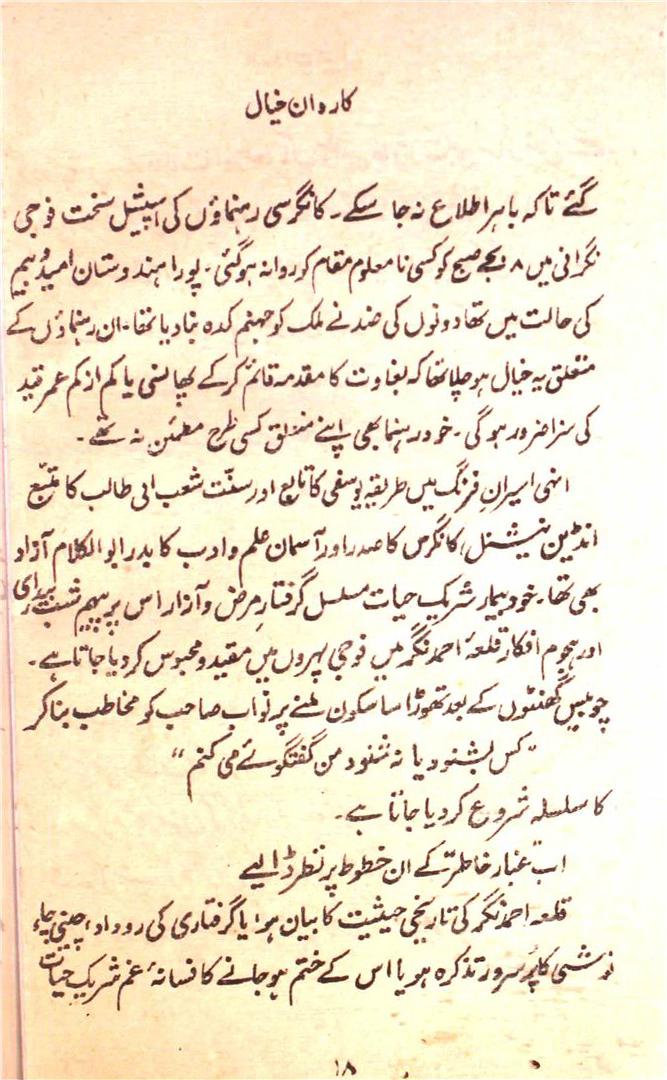 کاروان خیال
گئے تاکہ باہر اطلاع نہ جا سکے۔ کانگرسی رہنماؤں کی اسپیشل سخت فوجی
نگرانی میں ۸ بجے صبح کو کسی نامعلوم مقام کو روانہ ہوگئی۔ پورا ہندوستان امید و بیم
کی حالت میں تھا دونوں کی ضد نے ملک کو جہنم کدہ بنا دیا تھا۔ ان رہنماؤں کے
متعلق یہ خیال ہو چلا تھا کہ بغاوت کا مقدمہ قائم کرکے پھانسی یا کم از کم عمر قید
کی سزا ضرور ہوگی۔ خود رہنما بھی اپنے متعلق کسی طرح مطمئن نہ تھے۔
انہی اسیرانِ فرنگ میں طریقہ یوسفی کا تابع اور سنّت شعب ابی طالب کا متبّع
انڈین نیشنل کانگرس کا صدر اور آسمان علم و ادب کا بدر ابوالکلام آزاد
بھی تھا۔ خود بیمار شریک حیات مسلسل گرفتارِ مرض و آزار اس پر پیہم شب بیداری
اور ہجوم افکار قلعۂ احمد نگر میں فوجی پہروں میں مقید و محبوس کر دیا جاتا ہے۔
چوبیس گھنٹوں کے بعد تھوڑا سا سکون ملنے پر نواب صاحب کو مخاطب بنا کر
"کس بشنود یا نہ شنود من گفتگوئے می کنم"
کا سلسلہ شروع کر دیا جاتا ہے۔
اب غبار خاطر کے ان خطوط پر نظر ڈالیے
قلعہ احمد نگر کی تاریخی حیثیت کا بیان ہو یا گرفتاری کی روداد، چینی چاء
نوشی کا پُر سرور تذکرہ ہو یا اس کے ختم ہو جانے کا فسانۂ غم شریک حیات
۱۸